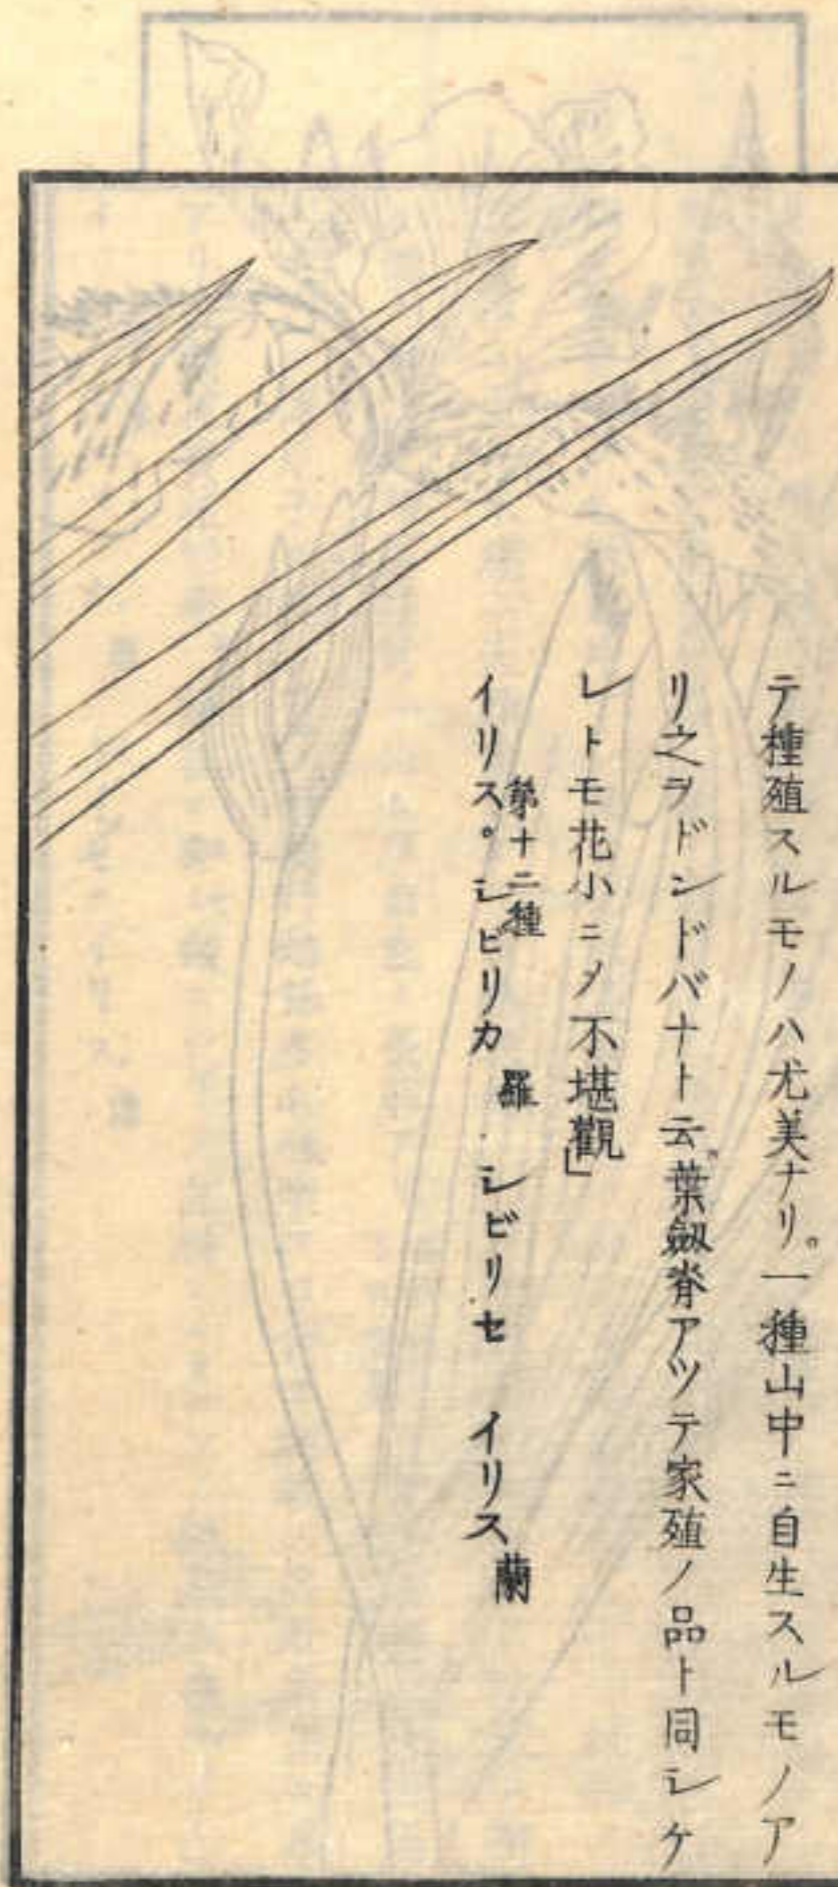 テ種殖スルモノハ尤美ナリ。一種山中ニ自生スルモノア
リ之ヲドンドバナト云。葉劔脊アツテ家殖ノ品ト同シケ
レトモ花小ニ〆不堪觀」
第十二種
イリス。シビリカ 羅 シビリセ イリス 蘭